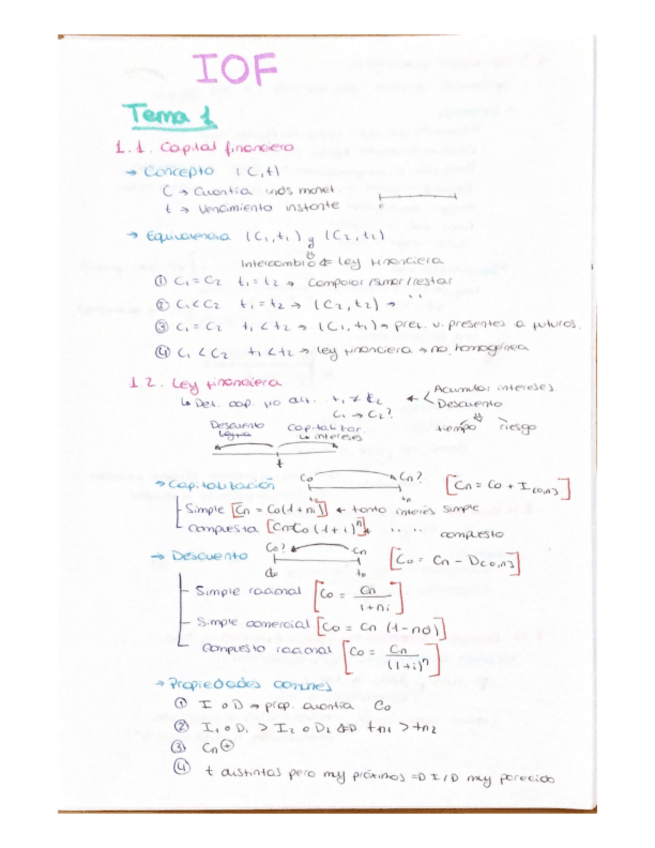 IOF
Tema 1
1.1. Capital financiero
→ Concepto (C,t)
C → Cuantía unds monet
t → Vencimiento instante
0
→ Equivalencia (C₁,t₁) y (C₂,t₂)
Intercambio ⇐ Ley financiera
① C₁=C₂ t₁=t₂ → Comparar/sumar/restar
② C₁<C₂ t₁=t₂ → (C₂,t₂) → ''
③ C₁=C₂ t₁<t₂ → (C₁,t₁) → pref. v. presentes a futuros.
④ C₁<C₂ t₁<t₂ → ley financiera → no homogénea
1.2. Ley financiera
↳ Det. cap. t₁ ≠ t₂ ← < Acumular intereses
C₁ → C₂? Descuento
Descuento Capitalizar tiempo riesgo
↳ intereses
t
→ Capitalización C₀ Cn? [Cn = C₀ + I(0,n)]
t₀ tn
Simple [Cn = C₀(1+ni)] ← tanto interés simple
Compuesta [Cn=C₀(1+i)ⁿ] ← '' '' compuesto
→ Descuento C₀? Cn [C₀ = Cn - D(0,n)]
Simple racional [C₀ = Cn / 1+ni]
Simple comercial [C₀ = Cn (1-nd)]
Compuesto racional [C₀ = Cn / (1+i)ⁿ]
→ Propiedades comunes
① I o D → prop. cuantía C₀
② I₁ o D₁ > I₂ o D₂ ⇔ tn₁ > tn₂
③ Cn ⊕
④ t distintas pero muy próximos ⇒ I/D muy parecido